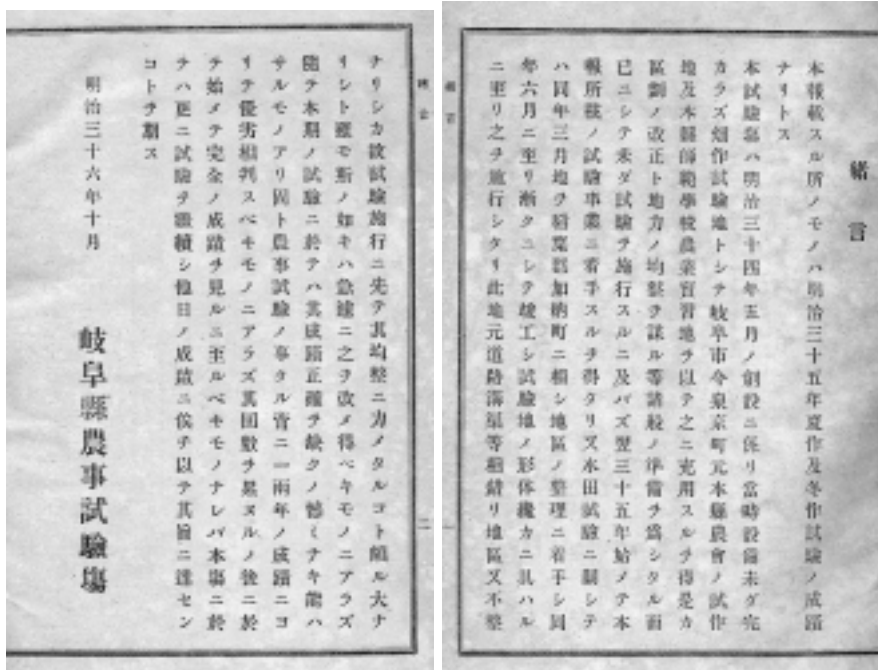 緒言
本報載スル所ノモノハ明治三十五年夏作及冬作試驗ノ成蹟
ナリトス
本試驗塲ハ明治三十四年五月ノ創設ニ係リ當時設備未ダ完
カラズ畑作試驗地トシテ岐阜市今泉京町元本縣農會ノ試作
地及本縣師範學校農業實習地ヲ以テ之ニ充用スルヲ得是カ
區劃ノ改正ト地力ノ均整ヲ謀ル等諸般ノ準備ヲ爲シタル而
已ニシテ未ダ試驗ヲ施行スルニ及バズ翌三十五年始メテ本
報所載ノ試驗事業ニ着手スルヲ得タリ又水田試驗ニ關シテ
ハ同年三月地ヲ稻葉郡加納町ニ相シ地區ノ整理ニ着手シ同
年六月ニ至リ漸クニシテ竣工シ試驗地ノ形体纔カニ具ハル
ニ至リ之ヲ施行シタリ此地元道路溝渠等錯リ地區又不整
緒言
一
緒言
二
ナリシカ故試驗施行ニ先テ其均整ニ力メタルコト頗ル大ナ
リシト雖モ斯ノ如キハ急速ニ之ヲ改メ得ベキモノニアラズ
隨テ本期ノ試驗ニ於テハ其成蹟正確ヲ缺クノ憾ミナキ能ハ
サルモノアリ固ト農事試驗ノ事タル啻ニ一兩年ノ成蹟ニヨ
リテ優劣相判スベキモノニアラズ其回數ヲ累ヌルノ後ニ於
テ始メテ完全ノ成蹟ヲ見ルニ至ルベキモノナレバ本塲ニ於
テハ更ニ試驗ヲ繼續シ他日ノ成蹟ニ俟チ以テ其旨ニ達セン
コトヲ期ス
明治三十六年十月
岐阜縣農事試驗塲